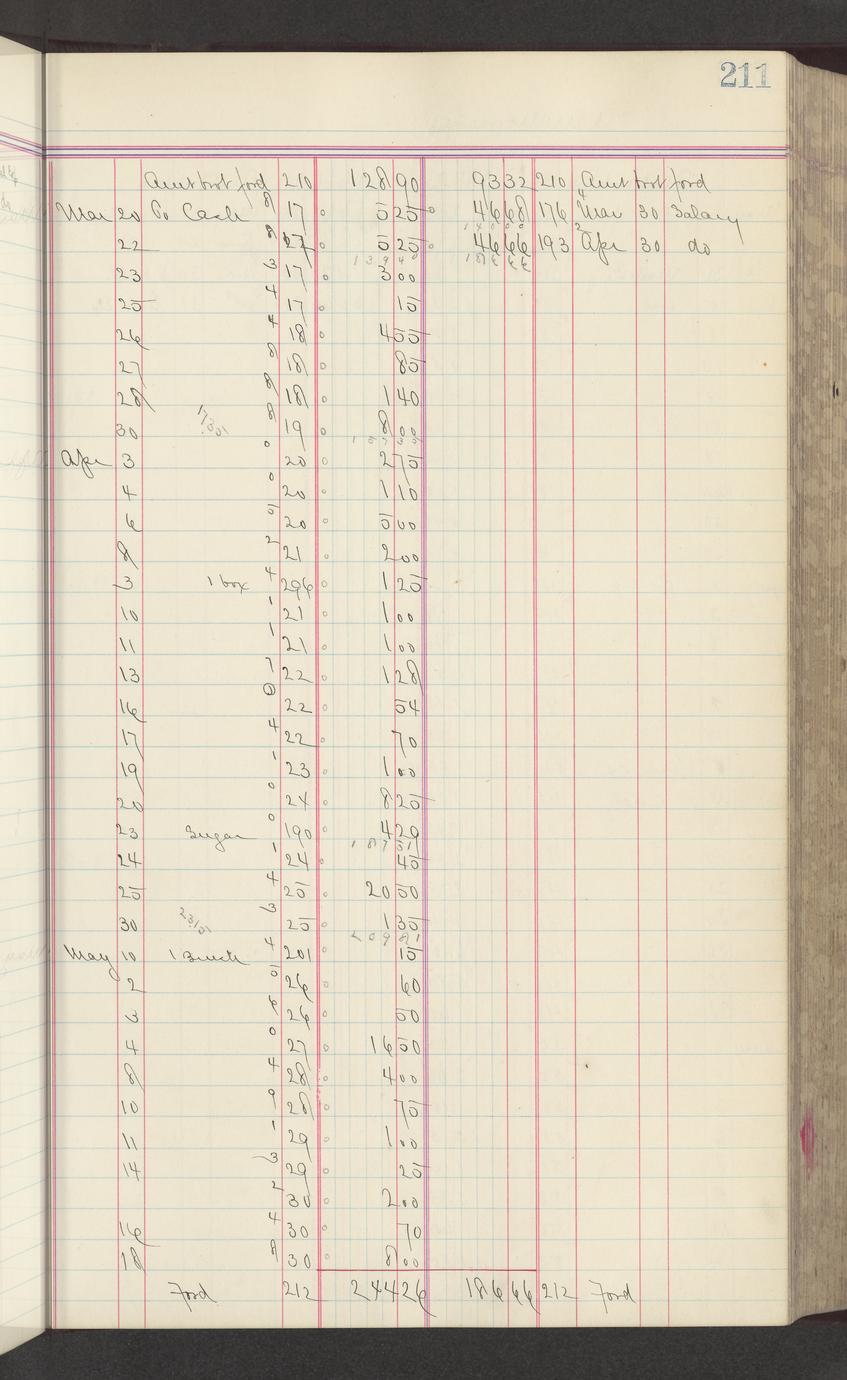 211
Amt brot ford 210 128 90 93 32 210 Amt brot ford
Mar 20 To Cash 8 17 5 25 46 68 176 4 Mar 30 Salary
22 8 17 5 25 46 66 193 2 Apr 30 do
139 40 186 66
23 3 17 3 00
25 4 17 15
26 4 18 4 55
27 8 18 85
28 8 18 1 40
30 8 19 8 00
Apr 3 0 20 2 75
4 0 20 1 10
6 5 20 5 00
8 2 21 2 00
3 1 box 4 296 1 25
10 1 21 1 00
11 1 21 1 00
13 7 22 1 28
16 22 54
17 4 22 70
19 1 23 1 00
20 0 24 8 25
23 Sugar 0 190 4 29
187 51
24 1 24 45
25 4 25 20 50
30 3 25 1 35
209 81
May 10 4 201 15
2 5 26 60
3 6 26 50
4 0 27 16 50
8 4 28 4 00
10 9 28 75
11 1 29 1 00
14 3 29 25
2 30 2 00
16 4 30 70
18 8 30 8 00
Ford 212 244 26 186 66 212 Ford